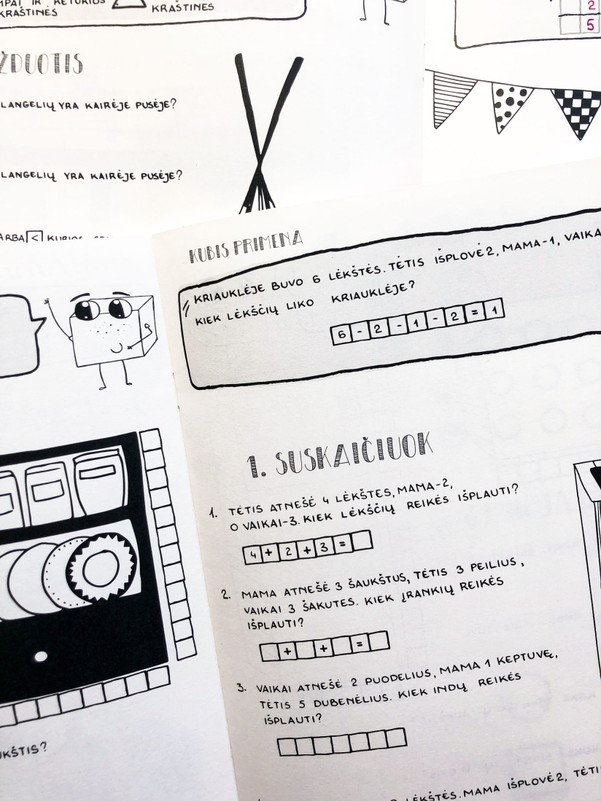 KRAŠTINĖS
KRAŠTINĖS
2
5
LANGELIŲ YRA KAIRĖJE PUSĖJE?
LANGELIŲ YRA KAIRĖJE PUSĖJE?
<
KUBIS PRIMENA
KRIAUKLĖJE BUVO 6 LĖKŠTĖS. TĖTIS IŠPLOVĖ 2, MAMA-1,
KIEK LĖKŠČIŲ LIKO KRIAUKLĖJE?
6 - 2 - 1 - 2 = 1
1. SUSKAIČIUOK
1. TĖTIS ATNEŠĖ 4 LĖKŠTES, MAMA-2,
O VAIKAI-3. KIEK LĖKŠČIŲ REIKĖS IŠPLAUTI?
4 + 2 + 3 =
2. MAMA ATNEŠĖ 3 ŠAUKŠTUS, TĖTIS 3 PEILIUS,
VAIKAI 3 ŠAKUTES. KIEK ĮRANKIŲ REIKĖS
IŠPLAUTI?
+ + =
3. VAIKAI ATNEŠĖ 2 PUODELIUS, MAMA 1 KEPTUVĘ,
TĖTIS 5 DUBENĖLIUS. KIEK INDŲ REIKĖS
IŠPLAUTI?
LĖKŠTĖS. MAMA IŠPLOVĖ 2,